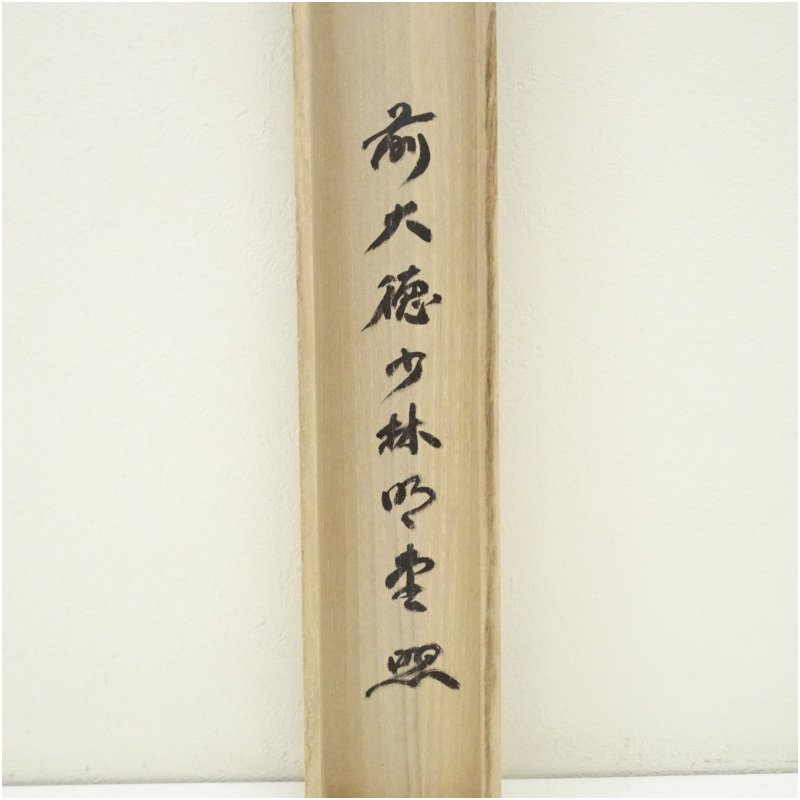 前大徳少林明堂照